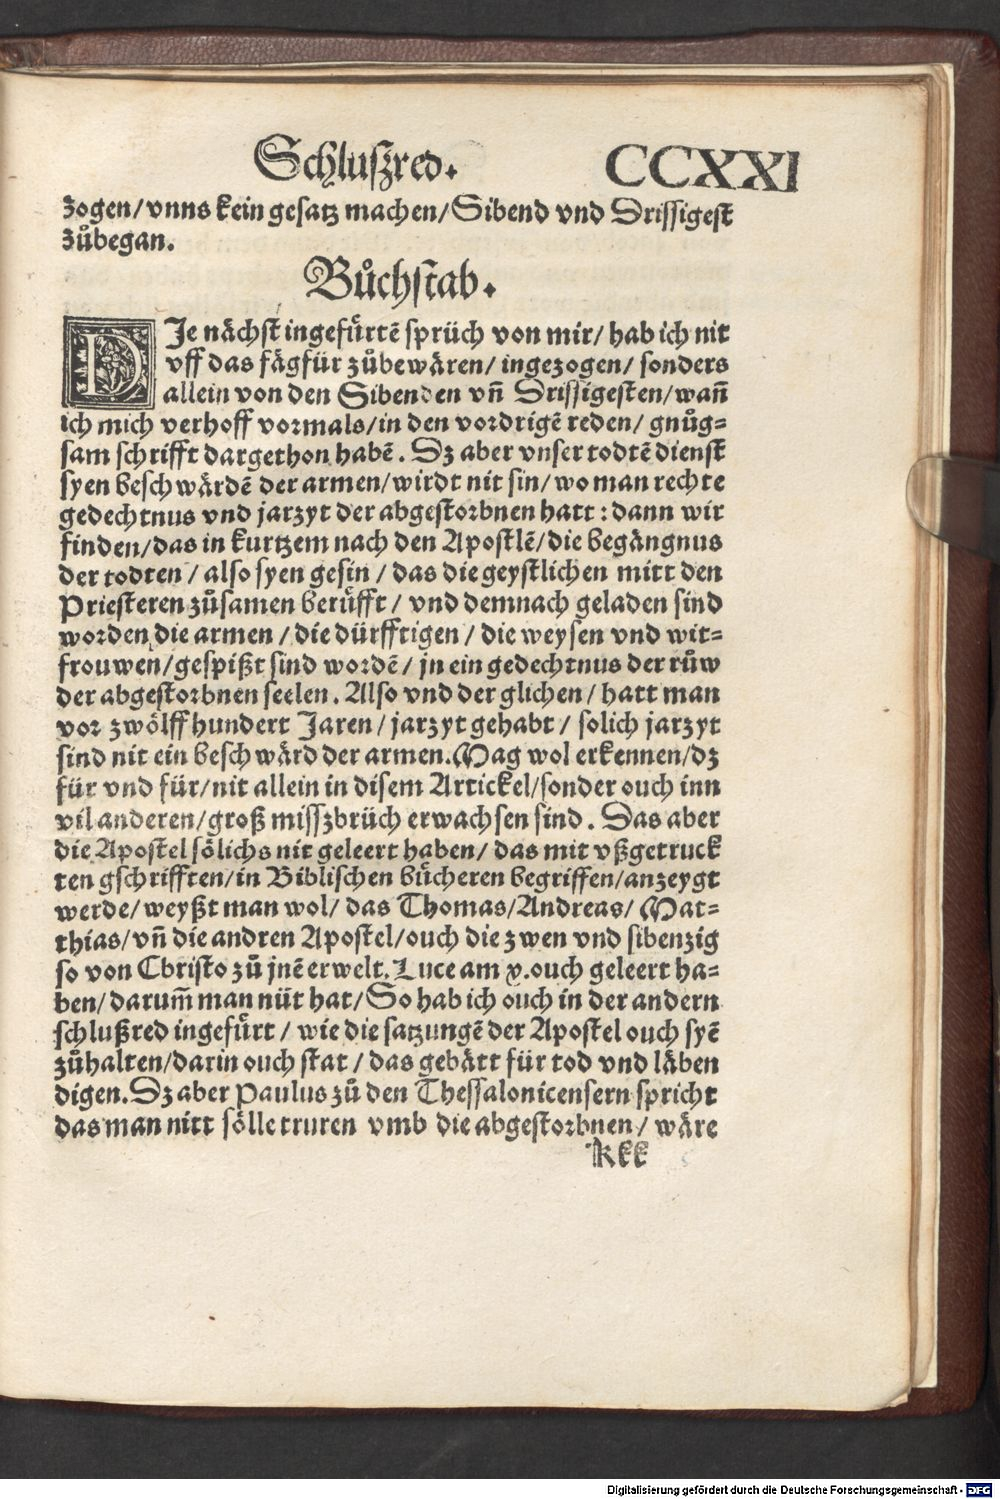 Schluszred. CCXXI
zogen/ vnns kein gesatz machen/ Sibend vnd Drissigest
zůbegan.
Bůchstab.
DJe nächst ingefürtē sprüch von mir/ hab ich nit
vff das fägfür zůbewären/ ingezogen/ sonders
allein von den Sibenden vn̄ Drissigesten/ wan̄
ich mich verhoff vormals/ in den vordrigē reden/ gnůg=
sam schrifft dargethon habē. Dz aber vnser todtē dienst
syen beschwärdē der armen/ wirdt nit sin/ wo man rechte
gedechtnus vnd jarzyt der abgestorbnen hatt: dann wir
finden/ das in kurtzem nach den Apostlē/ die begängnus
der todten/ also syen gesin/ das die geystlichen mitt den
Priesteren zůsamen berüfft/ vnd demnach geladen sind
worden die armen/ die dürfftigen/ die weysen vnd wit=
frouwen/ gespißt sind wordē/ jn ein gedechtnus der růw
der abgestorbnen seelen. Also vnd der glichen/ hatt man
vor zwölff hundert Jaren/ jarzyt gehabt/ solich jarzyt
sind nit ein beschwärd der armen. Mag wol erkennen/ dz
für vnd für/ nit allein in disem Artickel/ sonder ouch inn
vil anderen/ groß misszbrüch erwachsen sind. Das aber
die Apostel sölichs nit geleert haben/ das mit vßgetruck
ten gschrifften/ in Biblischen bücheren begriffen/ anzeygt
werde/ weyßt man wol/ das Thomas/ Andreas/ Mat=
thias/ vn̄ die andren Apostel/ ouch die zwen vnd sibenzig
so von Christo zů jnē erwelt. Luce am x. ouch geleert ha=
ben/ darum̄ man nüt hat/ So hab ich ouch in der andern
schlußred ingefürt/ wie die satzungē der Apostel ouch syē
zůhalten/ darin ouch stat/ das gebätt für tod vnd läben
digen. Dz aber Paulus zů den Thessalonicensern spricht
das man nitt sölle truren vmb die abgestorbnen/ wäre
Kkk
Digitalisierung gefördert durch die Deutsche Forschungsgemeinschaft - DFG